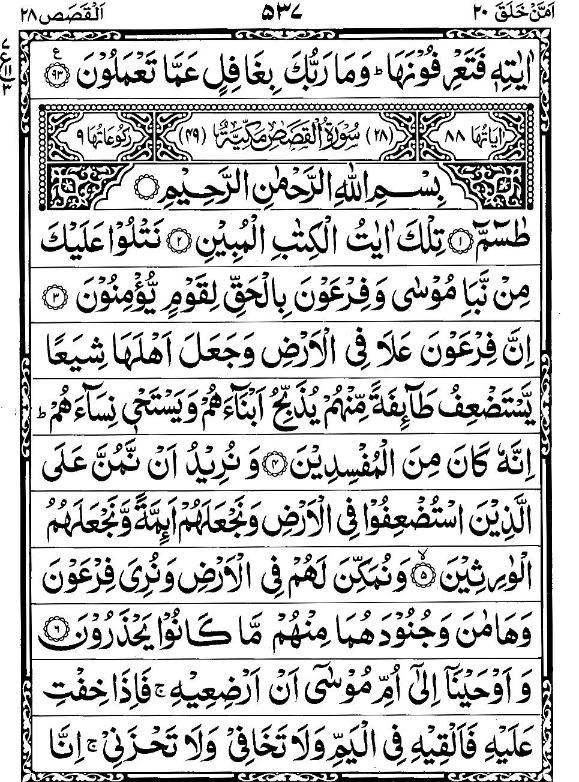 اَمَّنْ خَلَقَ ٢٠ ٥٣٧ اَلْقَصَص ٢٨
اٰيٰتِهٖ فَتَعْرِفُوْنَهَا ؕ وَمَا رَبُّكَ بِغَافِلٍ عَمَّا تَعْمَلُوْنَ ﴿٩٣﴾ ع
اٰيَاتُهَا ٨٨ (٢٨) سُوْرَةُ الْقَصَصِ مَكِّيَّةٌ (٤٩) رُكُوْعَاتُهَا ٩
بِسْمِ اللّٰهِ الرَّحْمٰنِ الرَّحِيْمِ
طٰسٓمّٓ ﴿١﴾ تِلْكَ اٰيٰتُ الْكِتٰبِ الْمُبِيْنِ ﴿٢﴾ نَتْلُوْا عَلَيْكَ
مِنْ نَّبَاِ مُوْسٰى وَفِرْعَوْنَ بِالْحَقِّ لِقَوْمٍ يُّؤْمِنُوْنَ ﴿٣﴾
اِنَّ فِرْعَوْنَ عَلَا فِى الْاَرْضِ وَجَعَلَ اَهْلَهَا شِيَعًا
يَّسْتَضْعِفُ طَآئِفَةً مِّنْهُمْ يُذَبِّحُ اَبْنَآءَهُمْ وَيَسْتَحْىٖ نِسَآءَهُمْ ؕ
اِنَّهٗ كَانَ مِنَ الْمُفْسِدِيْنَ ﴿٤﴾ وَنُرِيْدُ اَنْ نَّمُنَّ عَلَى
الَّذِيْنَ اسْتُضْعِفُوْا فِى الْاَرْضِ وَنَجْعَلَهُمْ اَئِمَّةً وَّنَجْعَلَهُمُ
الْوٰرِثِيْنَ ﴿٥﴾ۙ وَنُمَكِّنَ لَهُمْ فِى الْاَرْضِ وَنُرِىَ فِرْعَوْنَ
وَهَامٰنَ وَجُنُوْدَهُمَا مِنْهُمْ مَّا كَانُوْا يَحْذَرُوْنَ ﴿٦﴾
وَاَوْحَيْنَاۤ اِلٰٓى اُمِّ مُوْسٰٓى اَنْ اَرْضِعِيْهِ ۚ فَاِذَا خِفْتِ
عَلَيْهِ فَاَلْقِيْهِ فِى الْيَمِّ وَلَا تَخَافِىْ وَلَا تَحْزَنِىْ ۚ اِنَّا